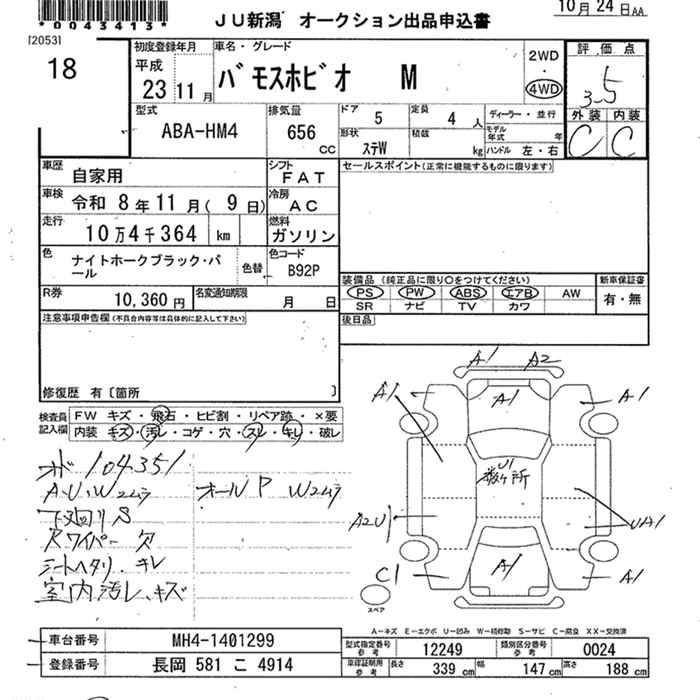 *0043413*
JU新潟 オークション出品申込書
10月 24日 AA
[2053]
18
初度登録年月
平成
23 11月
車名・グレード
バモスホビオ M
2WD
4WD
評価点
3.5
外装 内装
C C
型式
ABA-HM4
排気量
656 CC
ドア 5
定員 4 人
形状 ステW
積載 kg
ディーラー・並行
モデル年式 年
ハンドル 左・右
車歴 自家用
シフト FAT
車検 令和 8年11月( 9日)
冷房 AC
走行 10万4千364 km
燃料 ガソリン
色 ナイトホークブラック・パール
色替
色コード B92P
R券 10,360円
名変通知期限 月 日
セールスポイント(正常に機能するものに限ります)
装備品(純正品に限り○をつけてください)
PS PW ABS エアB AW
SR ナビ TV カワ
新車保証書
有・無
後日品
注意事項申告欄(不具合内容等は具体的に記入して下さい)
修復歴 有〔箇所 〕
検査員記入欄
FW キズ・飛石・ヒビ割・リペア跡・×要
内装 キズ・汚レ・コゲ・穴・スレ・キレ・破レ
104351
A・U・Wスムラ
オールP Wスムラ
下廻りS
Rワイパー欠
シートヘタリ・キレ
室内汚レ、キズ
A1 A2
A1 A1 A1
U1
数ヶ所
A2U1 UA1
C1 A1 A1
スペア
A-キズ E-エクボ U-凹み W-補修跡 S-サビ C-腐食 XX-交換済
車台番号 MH4-1401299
登録番号 長岡 581 こ 4914
型式指定番号 参考 12249
類別区分番号 参考 0024
車検証明用 参考 長さ 339 cm 幅 147 cm 高さ 188 cm